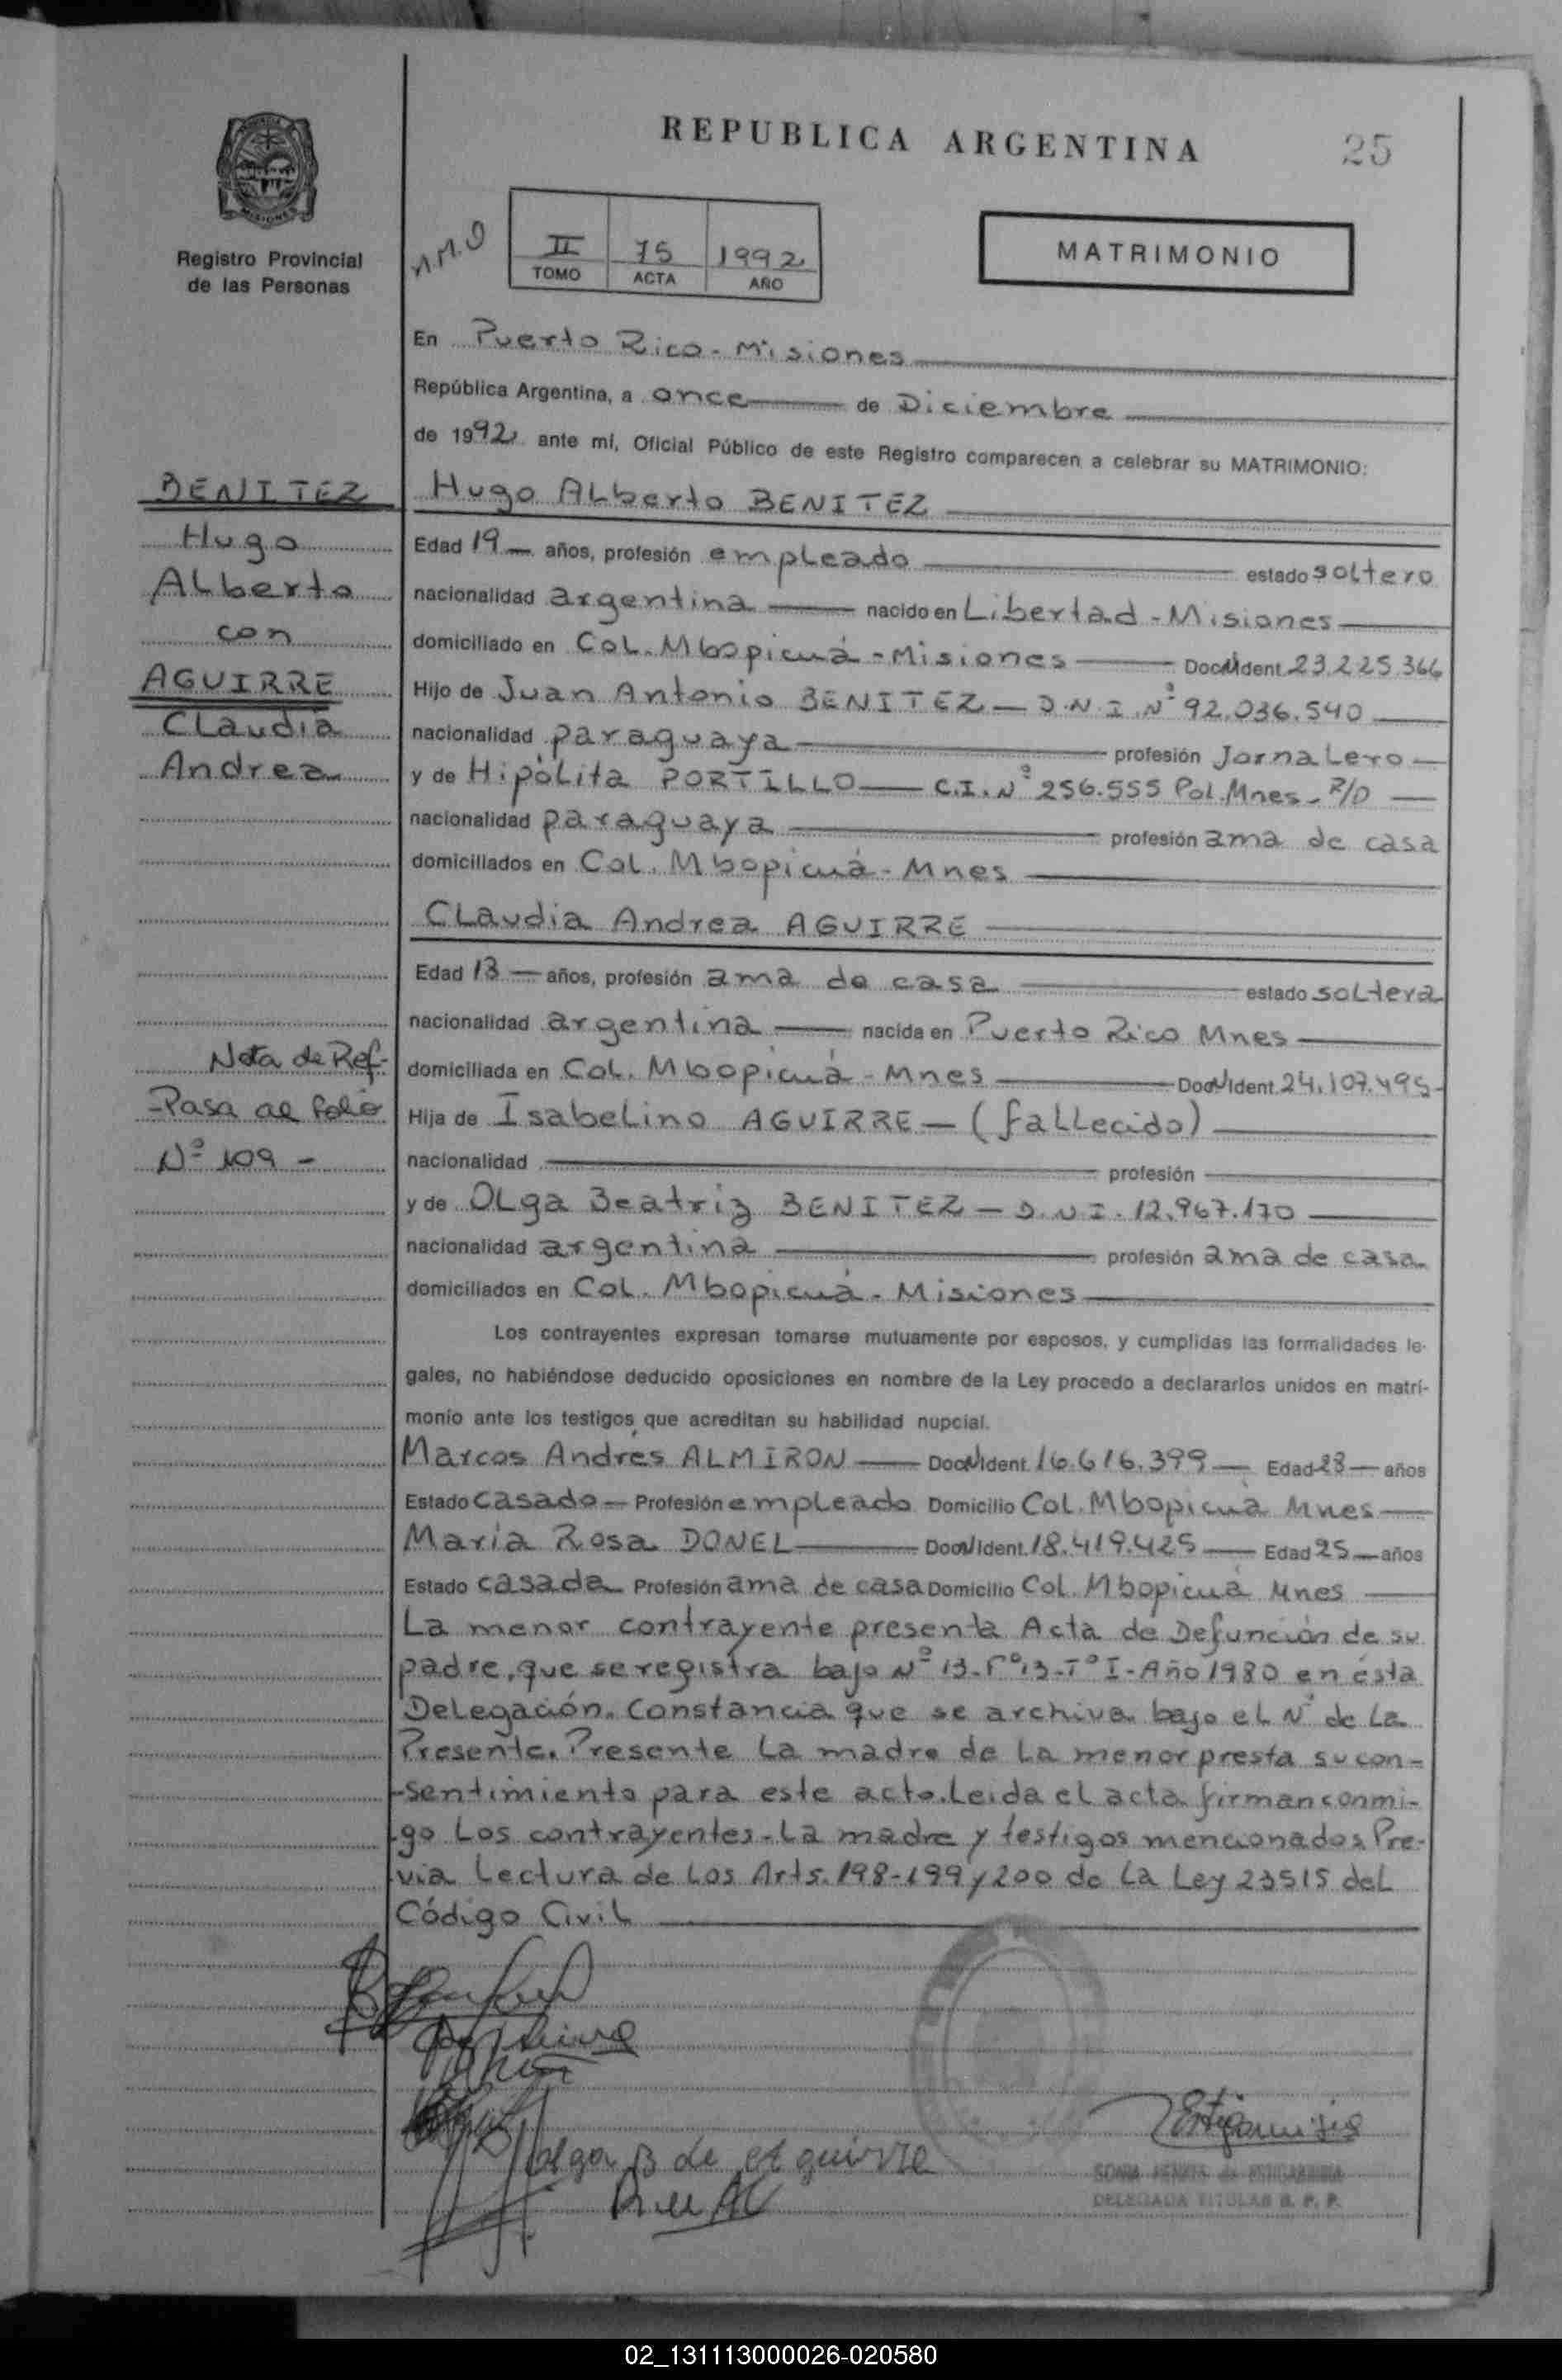 REPUBLICA ARGENTINA
25
MISIONES
Registro Provincial
de las Personas
II 75 1992
TOMO ACTA AÑO
MATRIMONIO
En Puerto Rico - Misiones
República Argentina, a once de Diciembre
de 1992 ante mí, Oficial Público de este Registro comparecen a celebrar su MATRIMONIO:
BENITEZ
Hugo
Alberto
con
AGUIRRE
Claudia
Andrea
Nota de Ref-
-Pasa al folio
Nº 109 -
Hugo Alberto BENITEZ
Edad 19 años, profesión empleado estado soltero
nacionalidad argentina nacido en Libertad - Misiones
domiciliado en Col. Mbopicuá - Misiones Doc. Ident. 23.225.366
Hijo de Juan Antonio BENITEZ - D.N.I. Nº 92.036.540
nacionalidad paraguaya profesión Jornalero
y de Hipólita PORTILLO - C.I. Nº 256.555 Pol. Mnes -
nacionalidad paraguaya profesión ama de casa
domiciliados en Col. Mbopicuá - Mnes
Claudia Andrea AGUIRRE
Edad años, profesión ama de casa estado soltera
nacionalidad argentina nacida en Puerto Rico Mnes
domiciliada en Col. Mbopicuá - Mnes Ident. 24.107.495-
Hija de Isabelino AGUIRRE - (fallecido)
nacionalidad profesión
y de Olga Beatriz BENITEZ - D.N.I. 12.967.170
nacionalidad argentina profesión ama de casa
domiciliados en Col. Mbopicuá - Misiones
Los contrayentes expresan tomarse mutuamente por esposos, y cumplidas las formalidades le-
gales, no habiéndose deducido oposiciones en nombre de la Ley procedo a declararlos unidos en matri-
monio ante los testigos que acreditan su habilidad nupcial.
Marcos Andrés ALMIRON Ident. 16.616.399 Edad 28 años
Estado casado Profesión empleado Domicilio Col. Mbopicuá Mnes
María Rosa DONEL Ident. 18.419.425 Edad 25 años
Estado casada Profesión ama de casa Domicilio Col. Mbopicuá Mnes
La menor contrayente presenta Acta de Defunción de su
padre, que se registra bajo Nº 13-Fº13-Tº I-Año 1980 en ésta
Delegación. Constancia que se archiva bajo el Nº de la
Presente. Presente la madre de la menor presta su con-
-sentimiento para este acto. Leida el acta firman conmi-
-go los contrayentes-la madre y testigos mencionados Pre-
via lectura de los Arts. 198-199 y 200 de la Ley 23515 del
Código Civil
Olga B de Aguirre
DELEGADA TITULAR R. P. P.
02_131113000026-020580